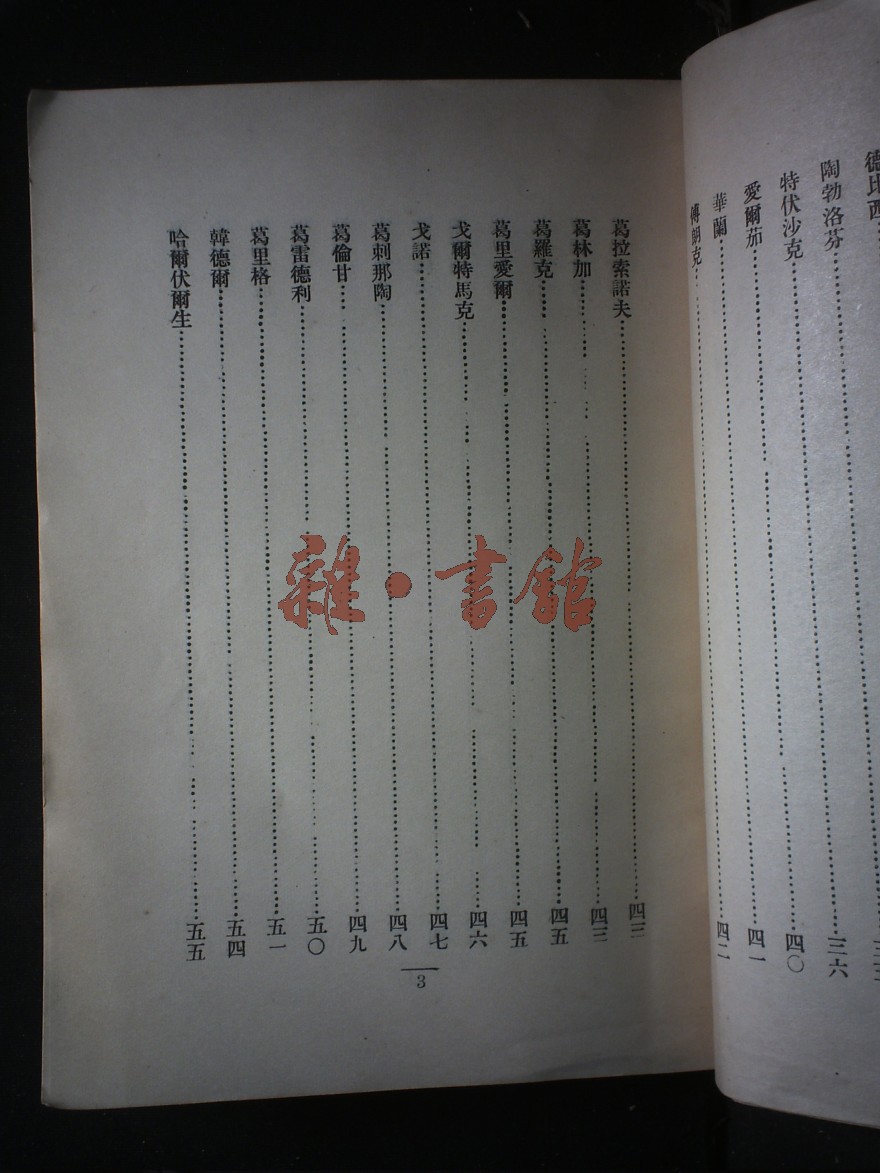 德比西
陶勃洛芬……三六
特伏沙克……四〇
愛爾茄……四一
華蘭……四二
傅朗克……
葛拉索諾夫……四三
葛林加……四三
葛羅克……四五
葛里愛爾……四五
戈爾特馬克……四六
戈諾……四七
葛刺那陶……四八
葛倫甘……四九
葛雷德利……五〇
葛里格……五一
韓德爾……五四
哈爾伏爾生……五五
3
雜·書館